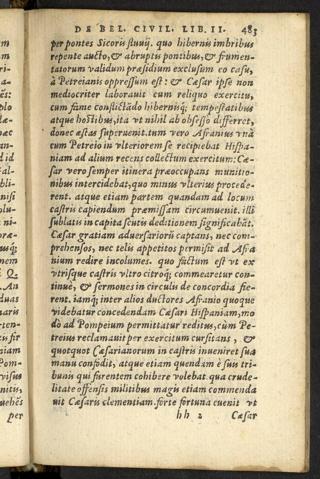 DE BEL. CIVIL. LIB. II. 483
per pontes Sicoris fluuij. quo hibernis imbribus
repente aucto, & abruptis pontibus, & frumen-
tatorum validum præsidium exclusum eo casu,
à Petreianis oppressum est: & Cæsar ipse non
mediocriter laborauit cum reliquo exercitu,
cum fame conflictādo hibernisq́; tempestatibus
atque hostibus, ita vt nihil ab obsesso differret,
donec æstas superuenit. tum vero Afranius vnà
cum Petreio in vlteriorem se recipiebat Hispa-
niam ad alium recens collectum exercitum: Cæ-
sar vero semper itinera præoccupans munitio-
nibus intercidebat, quo minus vlterius procede-
rent. atque etiam partem quandam ad locum
castris capiendum præmissam circumuenit. illi
sublatis in capita scutis deditionem significabāt.
Cæsar gratiam aduersariorū captans, nec com-
prehensos, nec telis appetitos permisit ad Afra
nium redire incolumes. quo factum est vt ex
vtrisque castris vltro citroq́; commearetur con-
tinuè, & sermones in circulis de concordia fie-
rent. iamq́; inter alios ductores Afranio quoque
videbatur concedendam Cæsari Hispaniam, mo
dò ad Pompeium permittatur reditus, cùm Pe-
treius reclamauit per exercitum cursitans, &
quotquot Cæsarianorum in castris inueniret sua
manu confodit, atque etiam quendam è suis tri-
bunis qui furentem cohibere volebat. qua crude-
litate offensis militibus magis etiam commenda
uit Cæsaris clementiam. forte fortuna euenit vt
hh 2 Cæsar